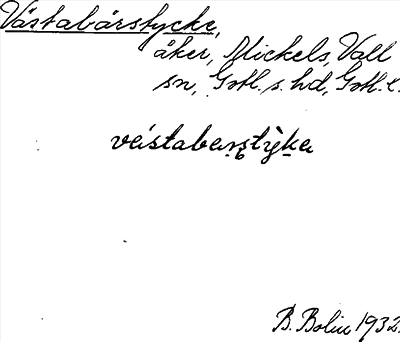 Västabärstycke,
åker, Mickels, Vall
sn, Gotl. s. hd, Gotl. l.
vástabarstỳka
B. Bolin 1932.